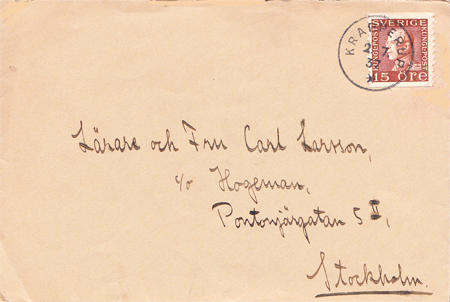 SVERIGE
KLINGEPOST
KLINGEPOST
15 ÖRE
Lärare och Fru Carl Larsson,
c/o Hogeman,
Pontonjärgatan 5 II,
Stockholm.